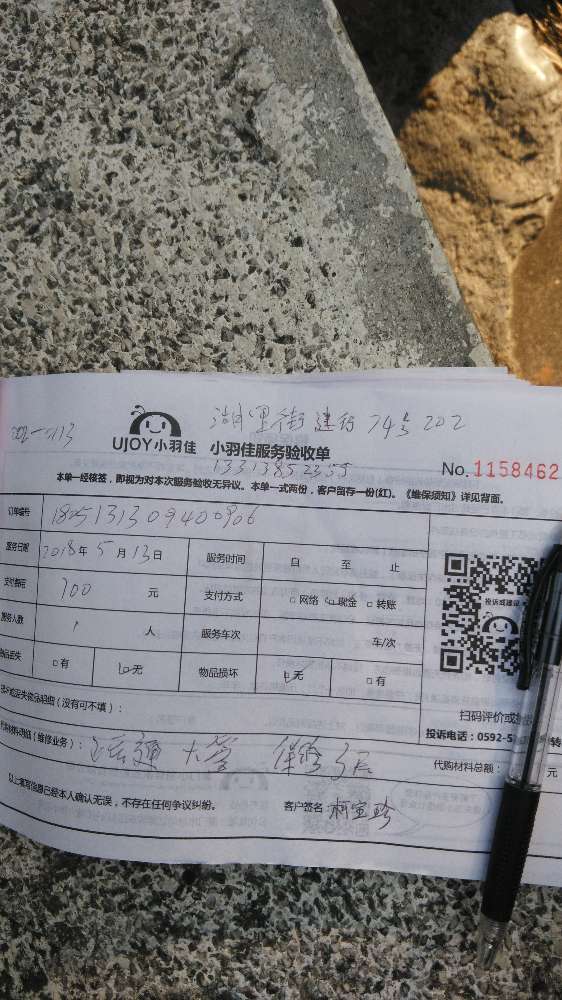 湖里街建行74号202
UJOY小羽佳 小羽佳服务验收单
13313852355
No.1158462
本单一经核签，即视为对本次服务验收无异议。本单一式两份，客户留存一份(红)。《维保须知》详见背面。
订单编号
服务日期 2018年5月13日 服务时间 自 至 止
支付费用 元 支付方式 □网络 □现金 □转账
服务人数 人 服务车次 车/次
物品丢失 □有 □无 物品损坏 □无 □有
投诉或建议
扫码评价或
投诉电话：0592-5
(没有可不填)：
(维修业务)： 疏通大管 保修3天 代购材料总额： 元
以上填写信息已经本人确认无误，不存在任何争议纠纷。 客户签名：柯宝珍